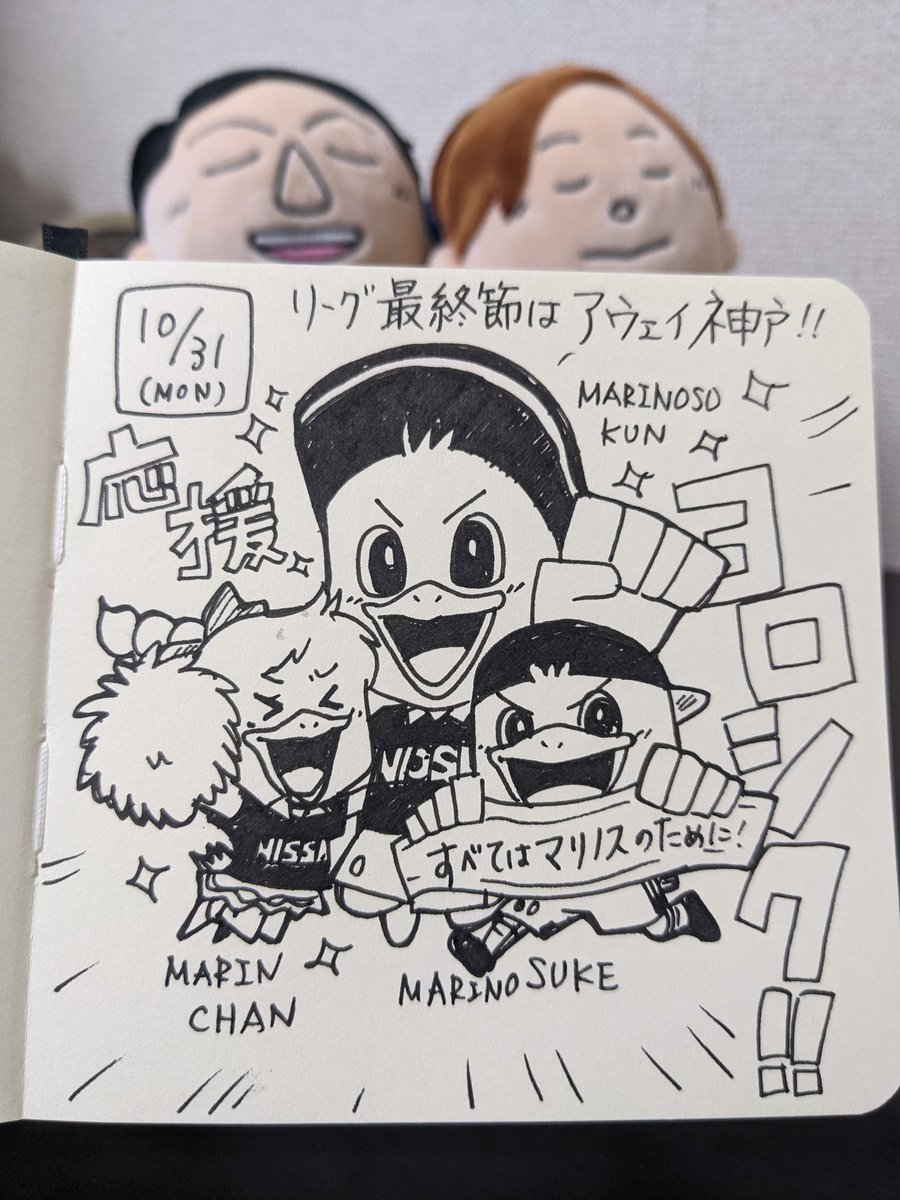 10/31
(MON)
リーグ最終節はアウェイ神戸!!
MARINOSO
KUN
応援
ヨロシク!!
NISSA
すべてはマリノスのために!
MARIN
CHAN
MARINOSUKE